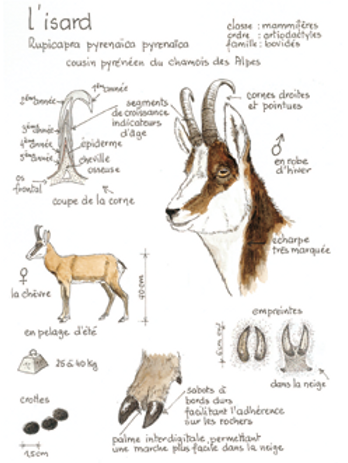 l'isard
Rupicapra pyrenaïca pyrenaïca
cousin pyrénéen du chamois des Alpes
classe : mammifères
ordre : artiodactyles
famille : bovidés
1ère année
2ème année
3ème année
4ème année
5ème année
segments
de croissance
indicateurs
d'âge
épiderme
cheville
osseuse
os
frontal
coupe de la corne
cornes droites
et pointues
♂
en robe
d'hiver
écharpe
très marquée
♀
la chèvre
70 cm
en pelage d'été
25 à 40 kg
crottes
1,5 cm
empreintes
dans la neige
sabots à
bords durs
facilitant l'adhérence
sur les rochers
palme interdigitale permettant
une marche plus facile dans la neige